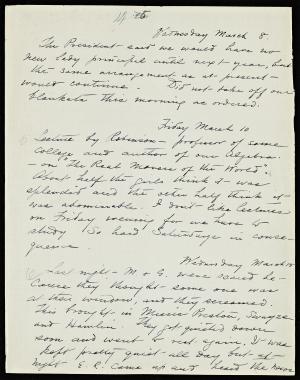 Wednesday March 8.
The President said we would have no
new lady principal until next year, but
the same arrangement as at present
would continue. Did not take off our
blankets this morning as ordered.
Friday March 10
Lecture by Robinson - professor of some
College and author of our Algebra
- on "The Real Movers of the World".
About half the girls think it was
splendid and the other half think it
was abominable. I don't like lectures
on Friday evening for we have to
study so hard Saturdays in conse-
quence.
Wednesday March
Last night - M & G. were scared be-
cause they thought some one was
at their window, and they screamed.
This brought in Misses
and Hamlin. They got quieted down
soon and went to rest again. I was
kept pretty quiet all day, but at
night E. R. came up and heard the news